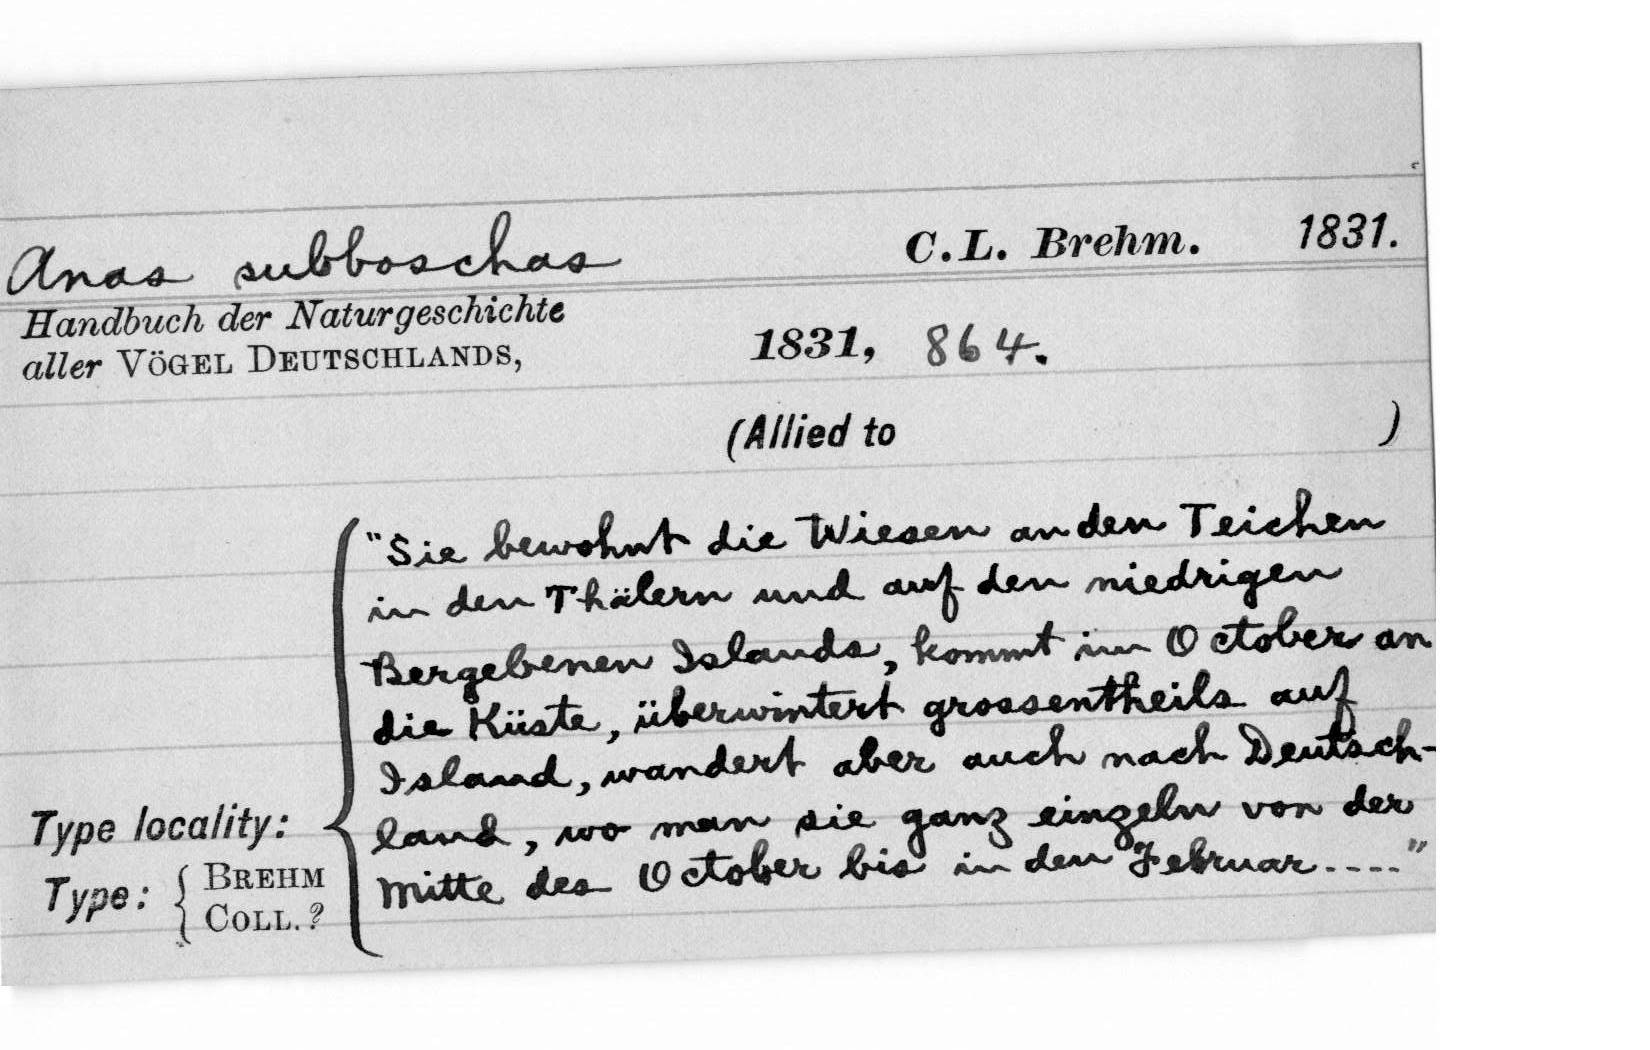 Anas subboschas C.L. Brehm. 1831.
Handbuch der Naturgeschichte
aller VÖGEL DEUTSCHLANDS, 1831, 864.
(Allied to )
"Sie bewohnt die Wiesen an den Teichen
in den Thälern und auf den niedrigen
Bergebenen Islands, kommt im October an
die Küste, überwintert grossentheils auf
Island, wandert aber auch nach Deutsch-
land, wo man sie ganz einzeln von der
Mitte des October bis in den Februar ----"
Type locality:
Type: { BREHM
COLL. ?